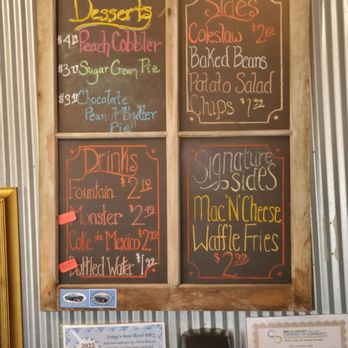 Desserts
Peach Cobbler
Sugar Cream Pie
Chocolate
Peanut Butter
Pie!!
Sides
Coleslaw
Baked Beans
Potato Salad
Chips $1.99
Drinks
Fountain $2.19
Monster $2.49
Coke de Mexico $2.79
Bottled Water $1.99
Signature
Sides
Mac 'N' Cheese
Waffle Fries
$2.99